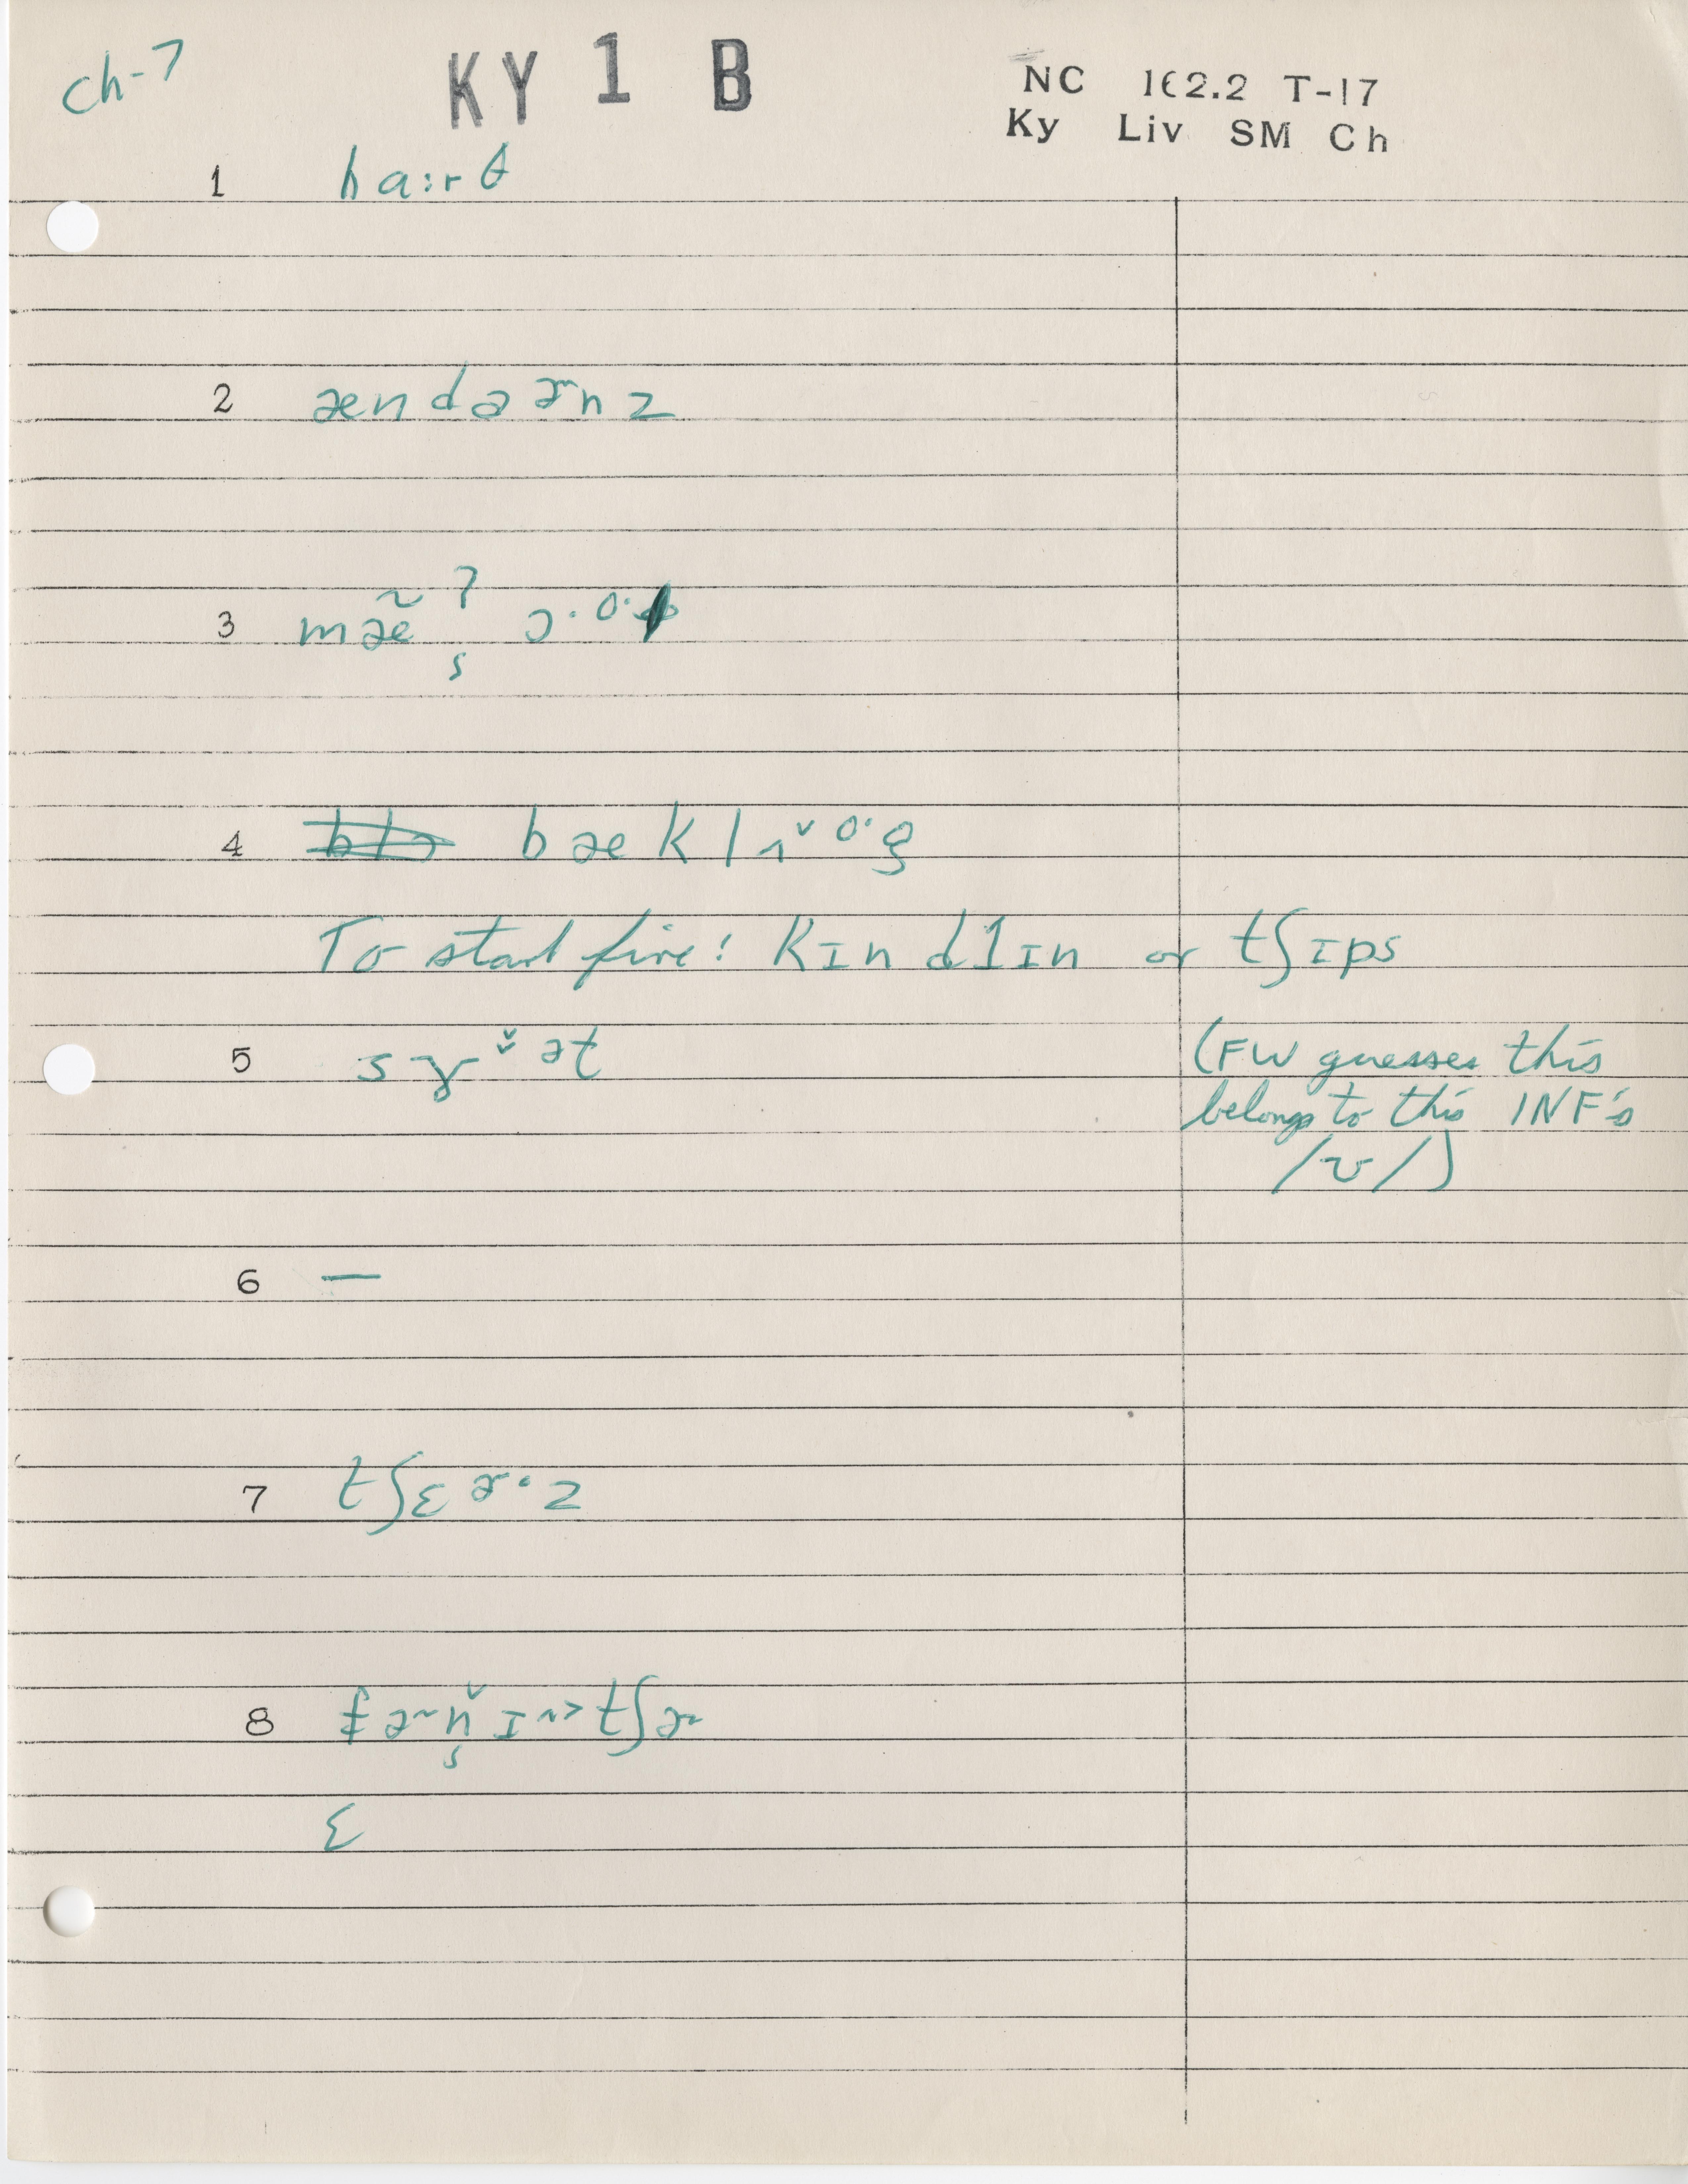 ch-7
KY 1 B
NC 162.2 T-17
Ky Liv SM Ch
1 haːrθ
2 ændaɚnz
3 mæ̃
4 bæklɪˇ
To start fire: KIndlIn or tʃIps
5 sɤˇət (FW guesses this
belongs to this INF's
/ʊ/)
6 —
7 tʃɛɚ·z
8 tʃɚ
ɛ